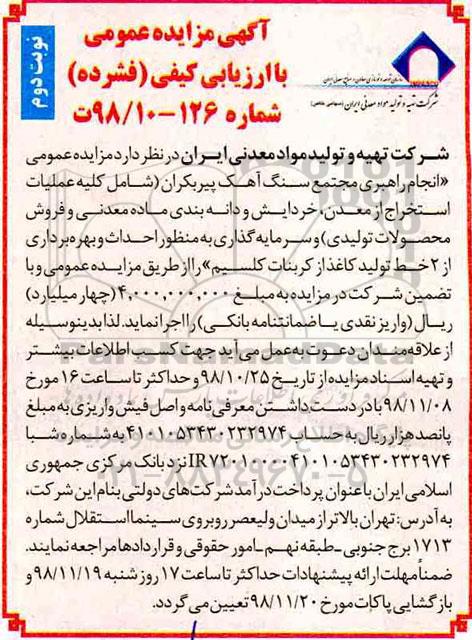 نوبت دوم
آگهی مزایده عمومی
با ارزیابی کیفی (فشرده)
شماره ۱۲۶-۹۸/۱۰ت
شرکت تهیه و تولید مواد معدنی ایران (سهامی خاص)
شرکت تهیه و تولید مواد معدنی ایران در نظر دارد مزایده عمومی
«انجام راهبری مجتمع سنگ آهک پیربکران (شامل کلیه عملیات
استخراج از معدن، خردایش و دانه بندی ماده معدنی و فروش
محصولات تولیدی) و سرمایه گذاری به منظور احداث و بهره برداری
از ۲ خط تولید کاغذ از کربنات کلسیم» را از طریق مزایده عمومی و با
تضمین شرکت در مزایده به مبلغ ۴,۰۰۰,۰۰۰,۰۰۰ (چهار میلیارد)
ریال (واریز نقدی یا ضمانتنامه بانکی) را اجرا نماید. لذا بدینوسیله
از علاقه مندان دعوت به عمل می آید جهت کسب اطلاعات بیشتر
و تهیه اسناد مزایده از تاریخ ۹۸/۱۰/۲۵ و حداکثر تا ساعت ۱۶ مورخ
۹۸/۱۱/۰۸ با در دست داشتن معرفی نامه و اصل فیش واریزی به مبلغ
پانصد هزار ریال به حساب ۴۱۰۱۰۵۳۴۳۰۲۳۲۹۷۴ به شماره شبا
نزد بانک مرکزی جمهوری
اسلامی ایران با عنوان پرداخت درآمد شرکت های دولتی بنام این شرکت،
به آدرس: تهران بالاتر از میدان ولیعصر روبروی سینما استقلال شماره
۱۷۱۳ برج جنوبی ـ طبقه نهم ـ امور حقوقی و قراردادها مراجعه نمایند.
ضمناً مهلت ارائه پیشنهادات حداکثر تا ساعت ۱۷ روز شنبه ۹۸/۱۱/۱۹ و
بازگشایی پاکات مورخ ۹۸/۱۱/۲۰ تعیین می گردد.
ParsNamadData
۰۲۱-۸۸۳۴۹۶۷۰-۵